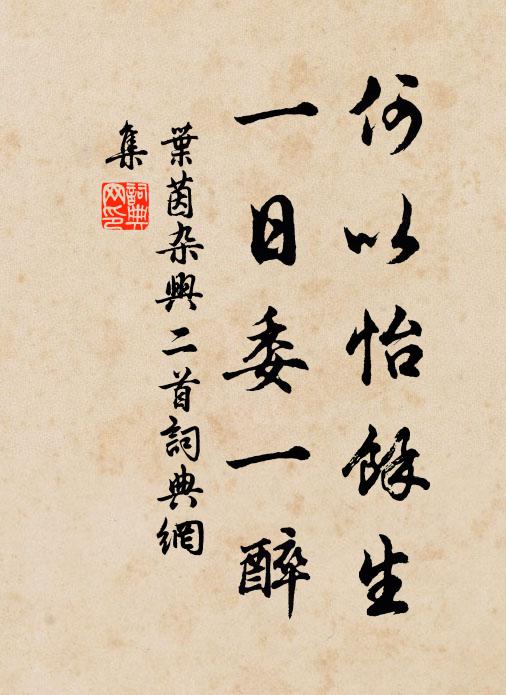 何以怡餘生
一日委一醉
葉茵杂興二首詞典網
集
詞典
网印